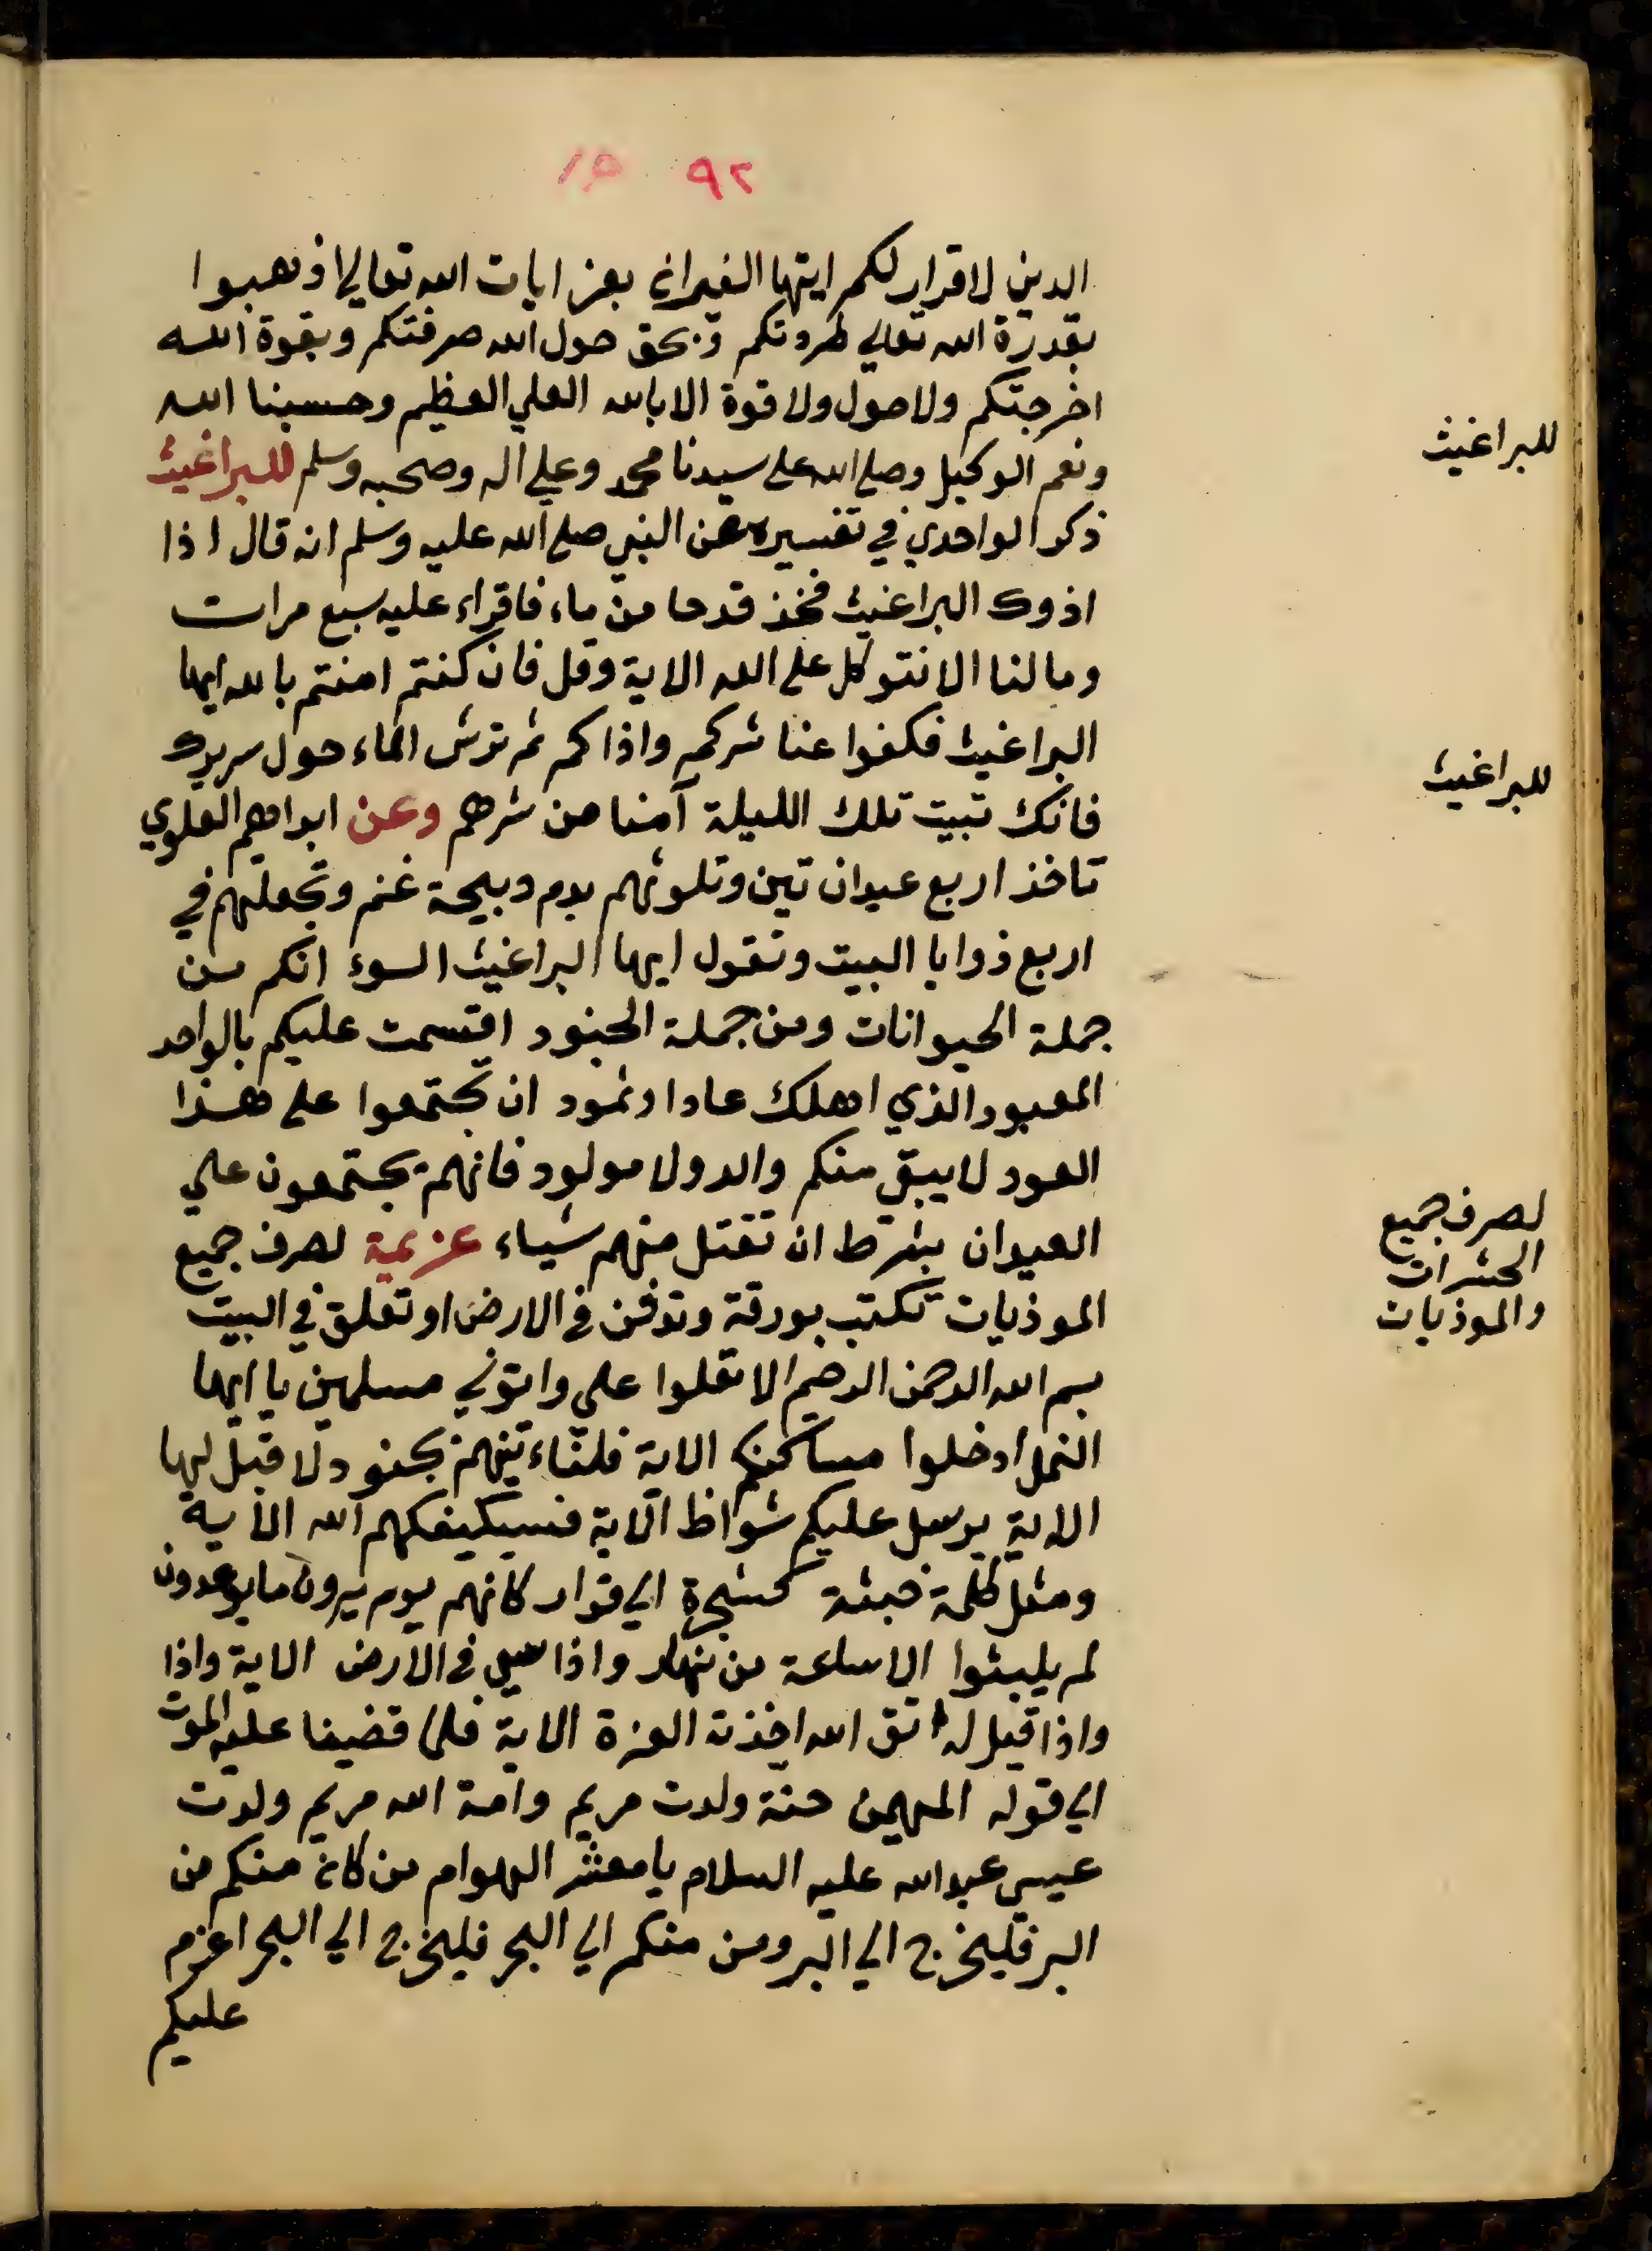 ٩٢
الدين لا قرار لكم ايتها الفيران بعز ايات الله تعالي اذهبوا
بقدرة الله تعالي طردتكم وبحق حول الله صرفتكم وبقوة الله
اخرجتكم ولا حول ولا قوة الا بالله العلي العظيم وحسبنا الله
ونعم الوكيل وصلي الله علي سيدنا محمد وعلي اله وصحبه وسلم للبراغيث
للبراغيث
ذكر الواحدي في تفسيره عن النبي صلي الله عليه وسلم انه قال اذا
اذوك البراغيث فخذ قدحا من ماء فاقراء عليه سبع مرات
وما لنا الا نتوكل علي الله الاية وقل فان كنتم امنتم بالله ايها
البراغيث فكفوا عنا شركم واذاكم ثم ترش الماء حول سريرك
للبراغيث
فانك تبيت تلك الليلة آمنا من شرهم وعن ابراهيم العلوي
تاخذ اربع عيدان تين وتلوثهم بدم دبيحة غنم وتجعلهم في
اربع زوايا البيت وتقول ايها البراغيث السوء انكم من
جملة الحيوانات ومن جملة الجنود اقتسمت عليكم بالواحد
المعبود الذي اهلك عادا وثمود ان تجتمعوا علي هذا
العود لا يبقي منكم والد ولا مولود فانهم يجتمعون علي
العيدان بشرط ان تقتل منهم شياء عزيمة لصرف جميع
لصرف جميع
الحشرات
والموذيات
الموذيات تكتب بورقة وتدفن في الارض او تعلق في البيت
بسم الله الرحمن الرحيم الا تعلوا علي واتوني مسلمين يا ايها
النمل ادخلوا مساكنكم الاية فلناءتينهم بجنود لا قبل لها
الاية يرسل عليكم شواظ الاية فسيكيفكهم الله الاية
ومثل كلمة خبيثة كشجرة الي قرار كانهم يوم يرون ما يوعدون
لم يلبثوا الا ساعة من نهار واذا سعي في الارض الاية واذا
واذا قيل له اتق الله اخذته العزة الاية فلما قضينا عليه الموت
الي قوله المهين حنة ولدت مريم وامة الله مريم ولدت
عيسي عبد الله عليه السلام يا معشر الهوام من كان منكم من
البر فليخرج الي البر ومن منكم الي البحر فليخرج الي البحر اعزم
عليكم